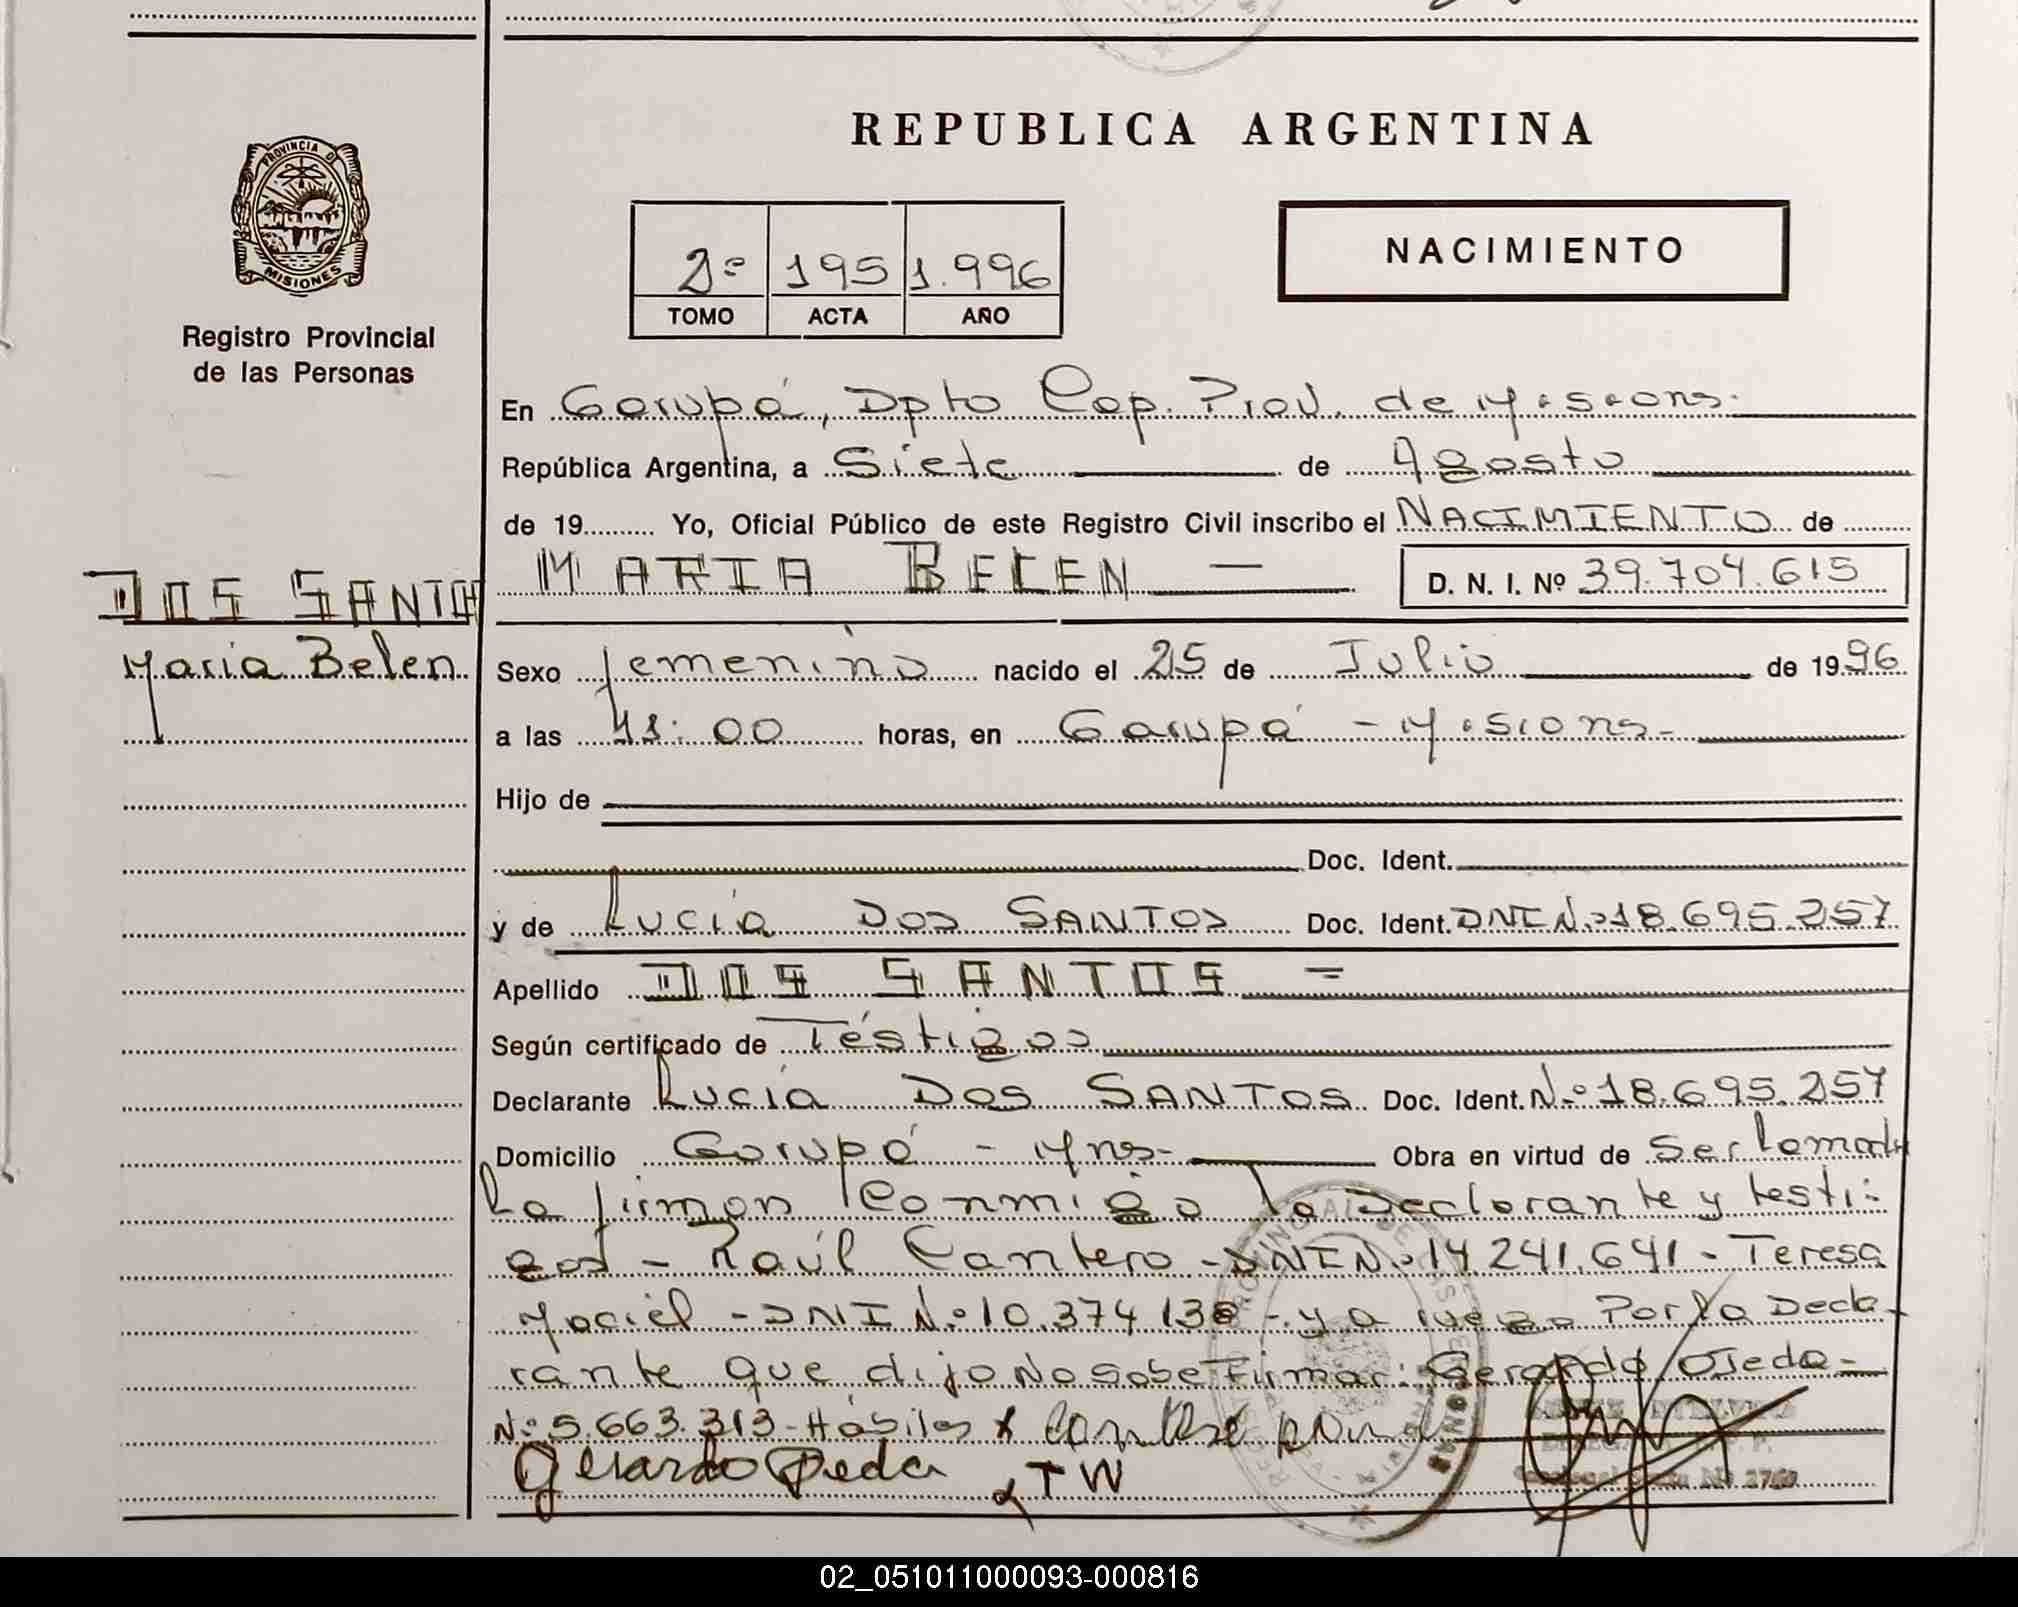 REPUBLICA ARGENTINA
PROVINCIA DE
MISIONES
Registro Provincial
de las Personas
2º 195 1.996
TOMO ACTA AÑO
NACIMIENTO
En Garupá, Dpto Cap. Prov. de Misions.
República Argentina, a Siete de Agosto
de 19 Yo, Oficial Público de este Registro Civil inscribo el NACIMIENTO de
MARIA BELEN — D. N. I. Nº 39.704.615
DOS SANTOS
Maria Belen
Sexo femenino nacido el 25 de Julio de 1996
a las horas, en Garupá - Misions-
Hijo de
Doc. Ident.
y de Lucía DOS SANTOS Doc. Ident. DNI Nº 18.695.257
Apellido DOS SANTOS =
Según certificado de Téstigos
Declarante Lucía Dos SANTOS Doc. Ident. Nº 18.695.257
Domicilio Garupá - Mns- Obra en virtud de Ser la madre
La firman Conmigo la Declarante y testi-
gos - Raúl Cantero - DNI Nº 14.241.641 - Teresa
Maciel - DNI Nº 10.374.138 - y a ruego Por la Decla-
rante que dijo No sabe Firmar: Gerardo Ojeda -
Nº 5.663.313 - Hábiles
Gerardo Ojeda TW
02_051011000093-000816